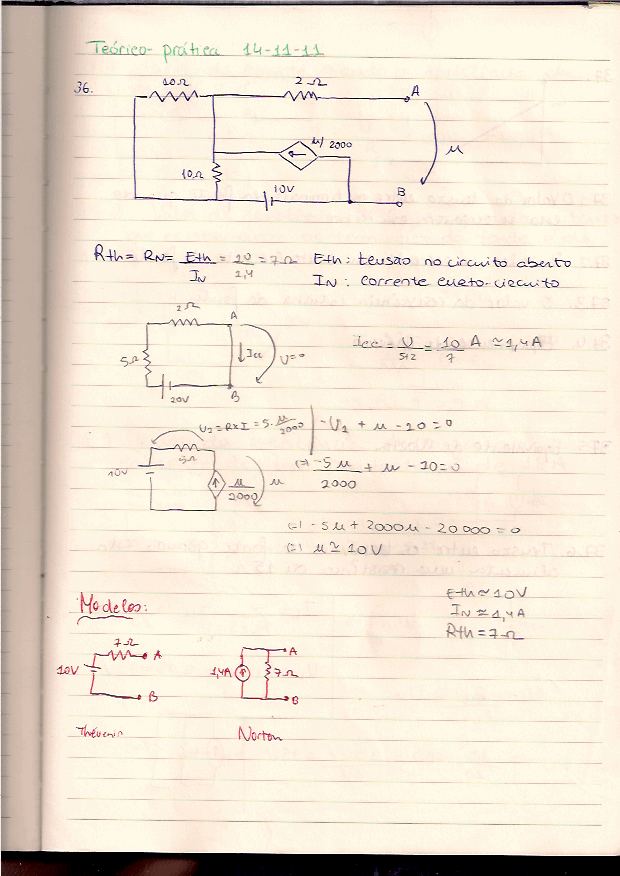 Teórico-prática 14-11-11
36.
10Ω 2Ω A
μ/2000
μ
10Ω 10V B
Rth= RN= Eth/IN = 10/1,4 = 7Ω Eth: tensão no circuito aberto
IN: corrente curto-circuito
2Ω A
5Ω Icc U=0
20V B
Icc = U/5+2 = 10/7 A ≃ 1,4A
U2=R×I = 5.μ/2000
-U2 + μ - 10 = 0
5Ω
10V μ/2000 μ
(=) -5μ/2000 + μ - 10 = 0
(=) -5μ + 2000μ - 20000 = 0
(=) μ ≃ 10V
Eth ≃ 10V
IN ≃ 1,4A
Rth = 7Ω
Modelos:
7Ω A
10V B
Thévenin
A
1,4A 7Ω
B
Norton